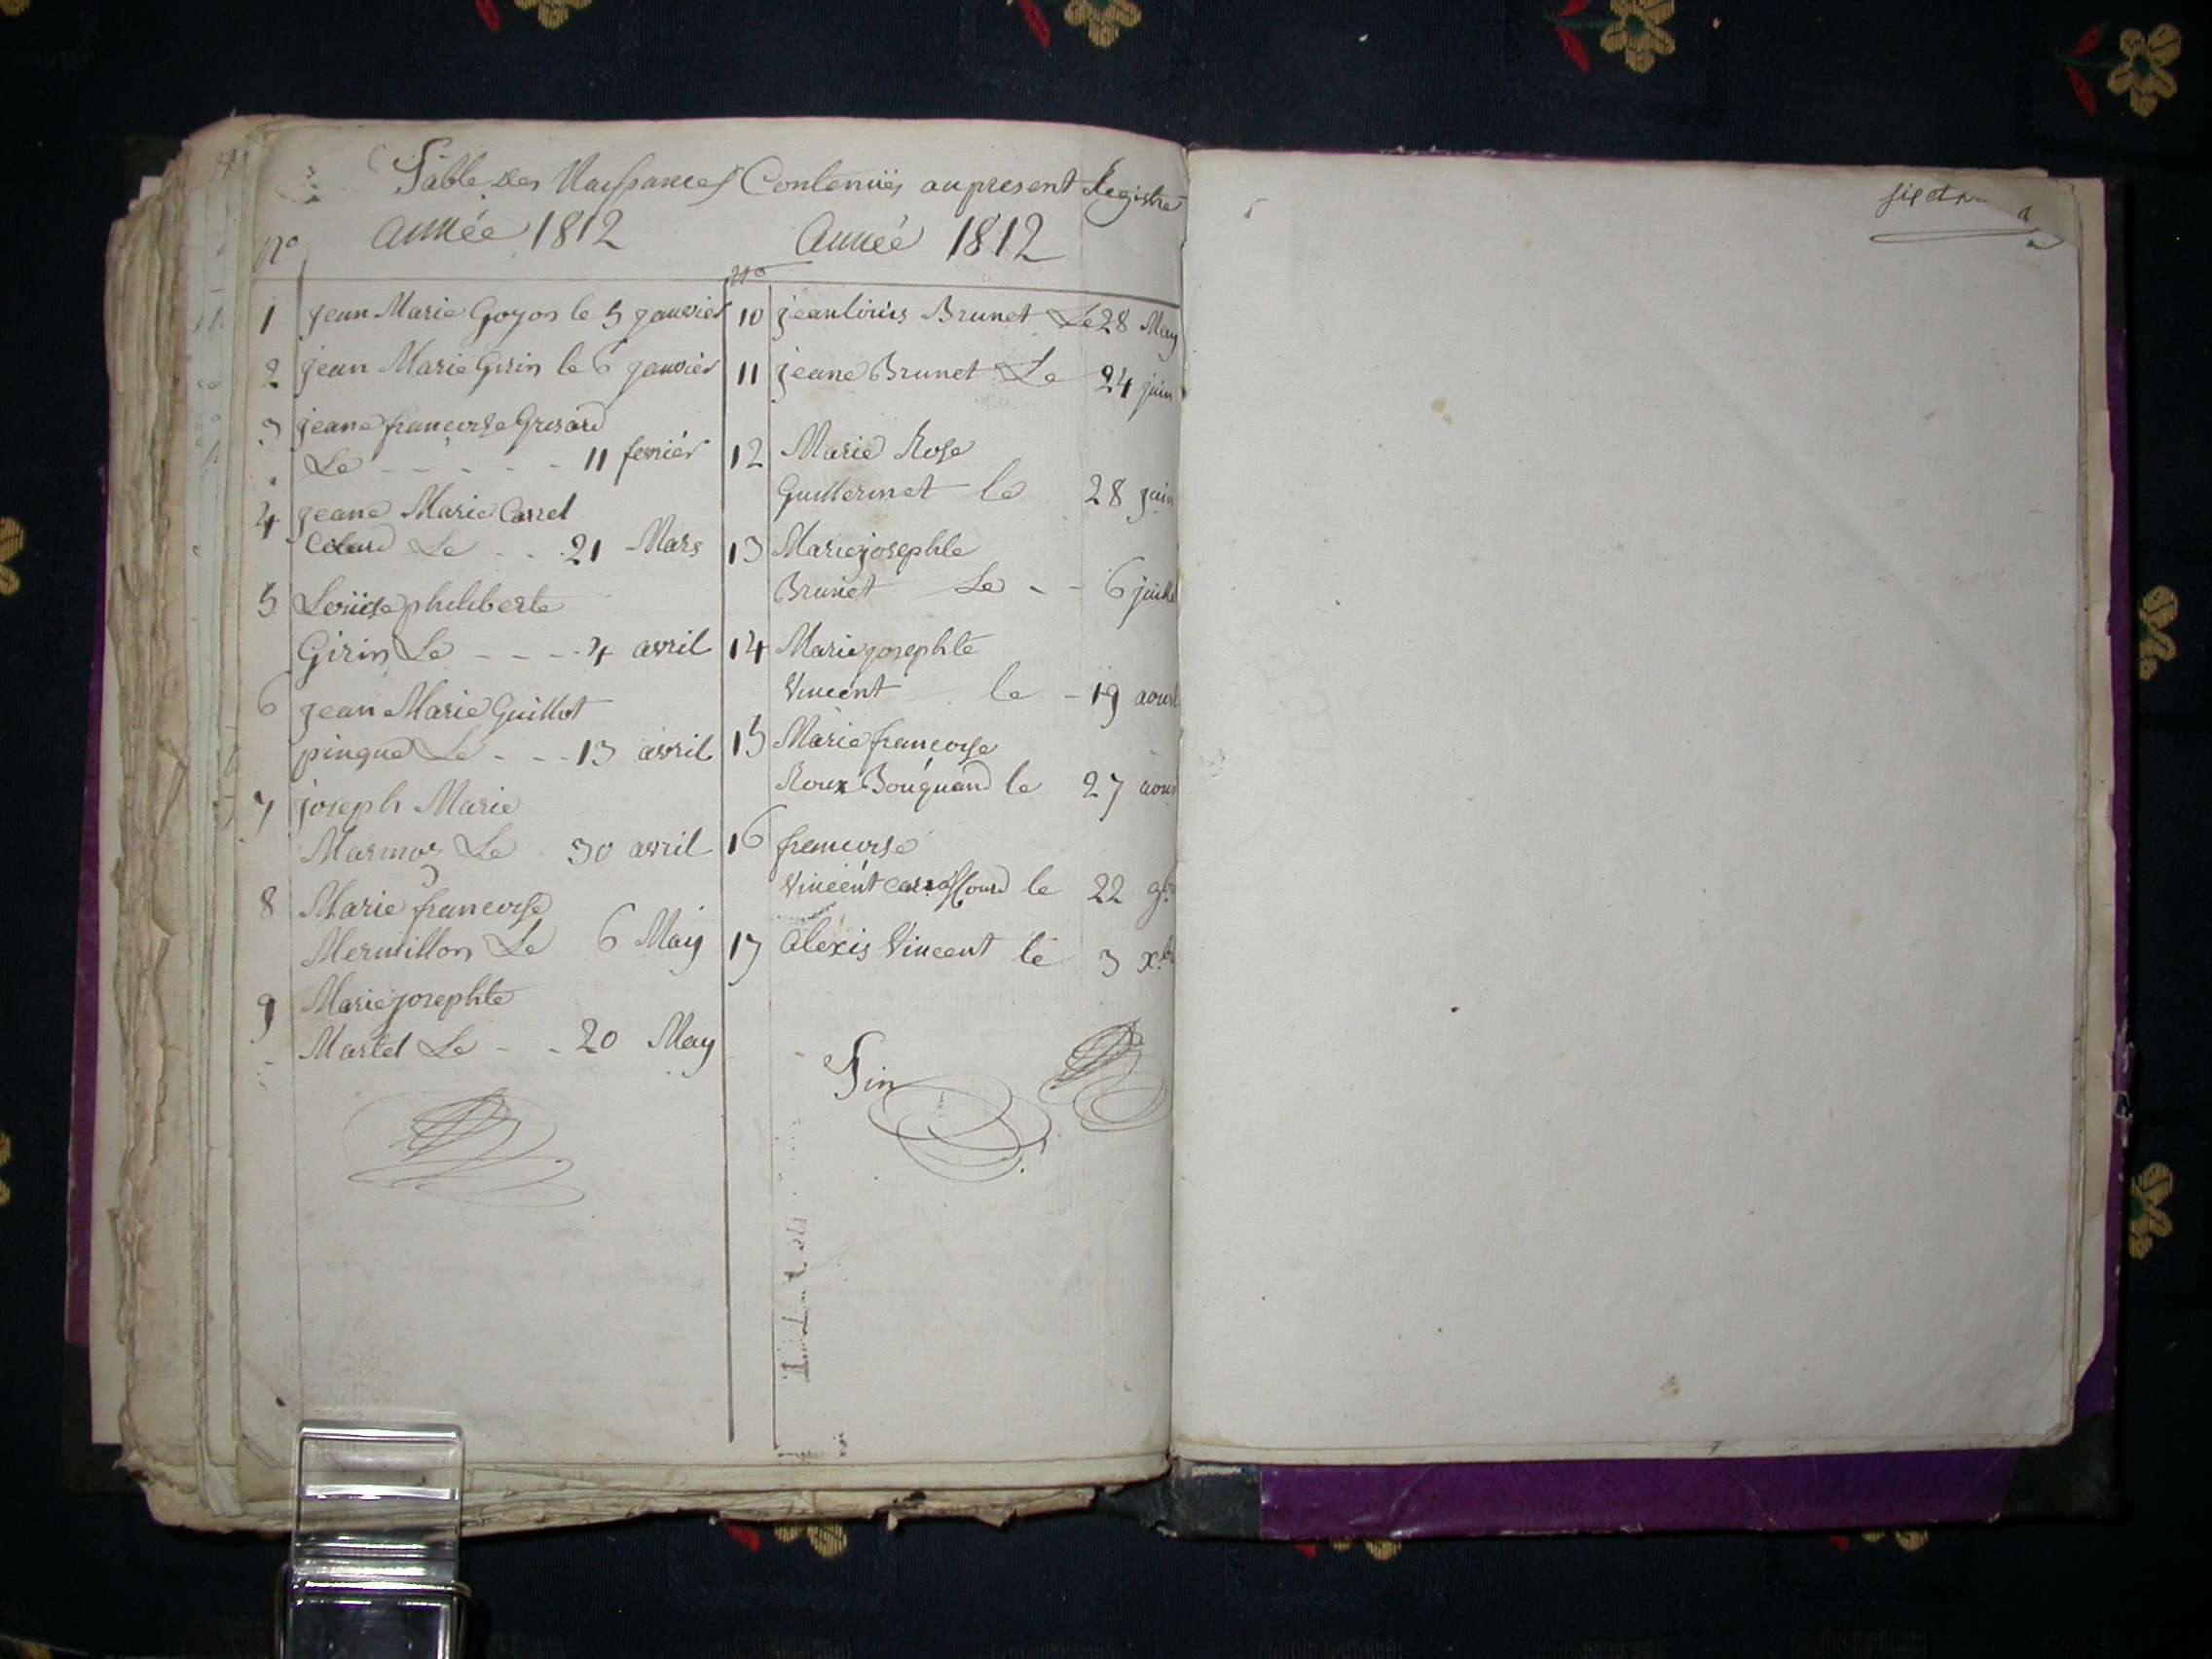 Table des Naissances Contenües au present Registre
nº année 1812
1 jean Marie Goyon le 5 janvier
2 jean Marie Girin le 6 janvier
3 jeane francoise Grisard
Le - - - - - - 11 fevriér
4 jeane Marie Carrel
Le - - . 21 Mars
5 Loüise philiberte
Girin Le - - - - 4 avril
6 jean Marie Guillot
pingue Le - - - 13 avril
7 joseph Marie
Marmoz Le 30 avril
8 Marie francoise
Mermillon Le 6 May
9 Marie josephte
Martel Le - - 20 May
année 1812
nº
10 jean loúis Brunet Le 28 May
11 jeane Brunet Le 24 juin
12 Marie Rose
Guillermet le 28 juin
13 Marie josephte
Brunet Le - - 6 juillet
14 Marie josephte
Vincent le - 19 aoust
15 Marie francoise
Roux Bouquand le 27 aoust
16 francoise
Vincent le 22 9.bre
17 alexis Vincent le 3 x.bre
Fin